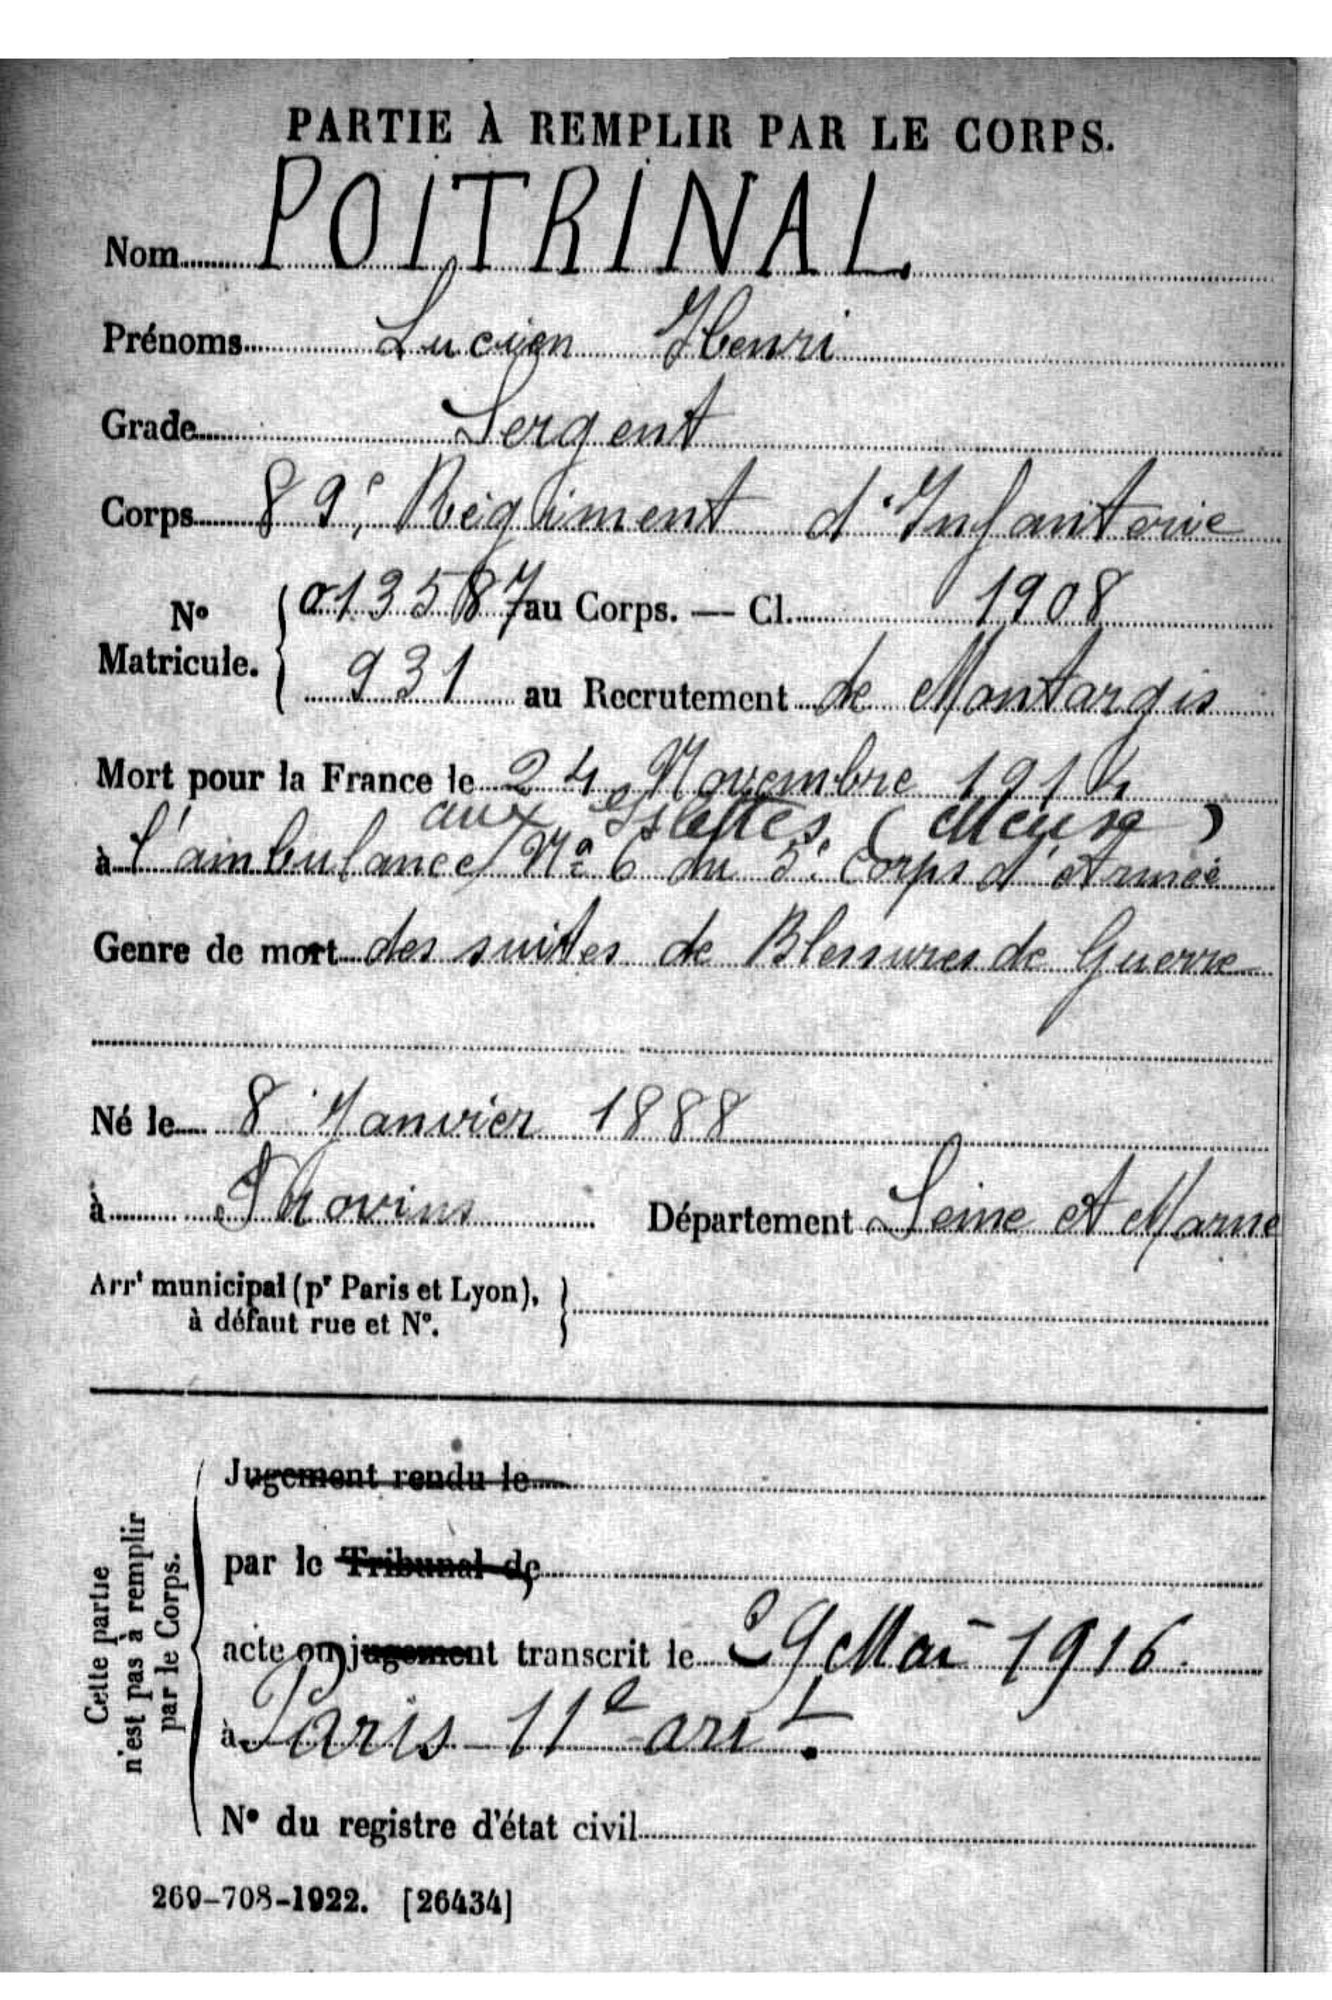 PARTIE À REMPLIR PAR LE CORPS.
Nom POITRINAL
Prénoms Lucien Henri
Grade Sergent
Corps 89e Régiment d'Infanterie
No Matricule. 013587 au Corps. — Cl. 1908
931 au Recrutement de Montargis
Mort pour la France le 24 Novembre 1914
aux Islettes (Meuse)
à l'ambulance No 6 du 5e Corps d'Armée
Genre de mort des suites de Blessures de Guerre
Né le 8 Janvier 1888
à Provins Département Seine et Marne
Arrt municipal (pr Paris et Lyon),
à défaut rue et No.
Cette partie
n'est pas à remplir
par le Corps.
Jugement rendu le
par le Tribunal de
acte ou jugement transcrit le 29 Mai 1916.
à Paris 11e arrt.
No du registre d'état civil
269-708-1922. [26434]